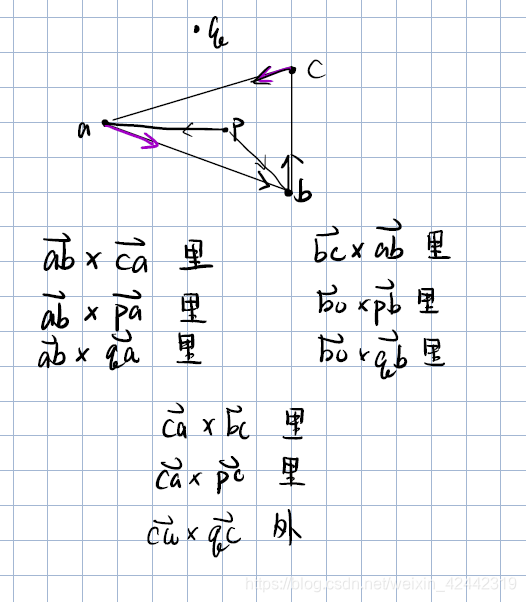 q
C
a
p
b
ab × ca 里
bc × ab 里
ab × pa 里
bc × pb 里
ab × qa 里
bc × qb 里
ca × bc 里
ca × pc 里
ca × qc 外
https://blog.csdn.net/weixin_42442319